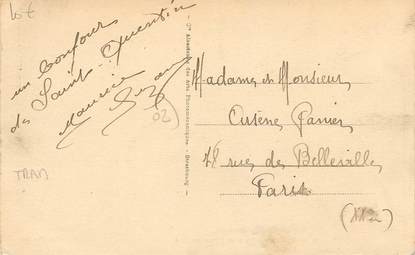 10€
un bonjour
de Saint-Quentin
Maurice
(02)
TRAM
Cie Alsacienne des Arts Photomécaniques - Strasbourg
Madame et Monsieur
78 rue de Belleville
Paris